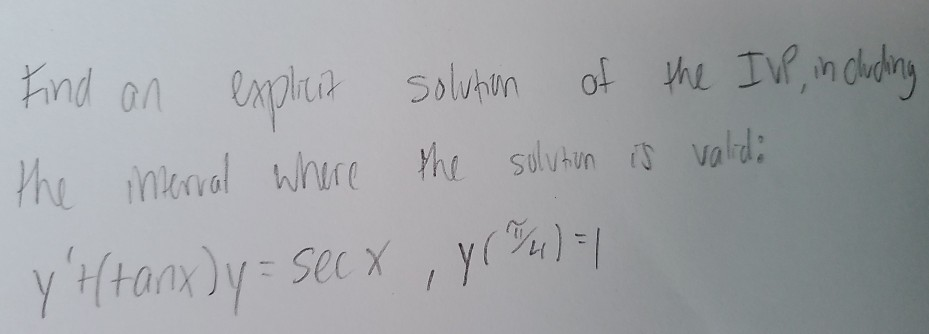 Find an explicit solution of the IVP, including
the interval where the solution is valid:
y'+(tanx)y = sec x , y(π/4)=1